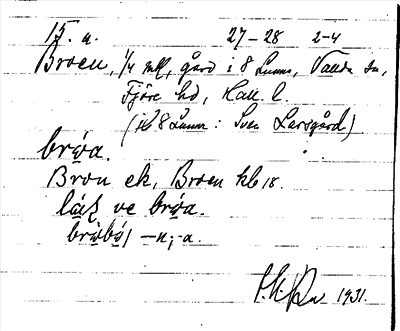 15. a. 27–28 2–4
Broen, 1/4 mtl, gård i 8 Lunn, Vallda sn,
Fjöre hd, Hall. l.
(i 8 Lunn: Sven Larsgård)
brωa.
Bron ek, Broen kb 18.
ve brωa.
–n, -a.
1931.